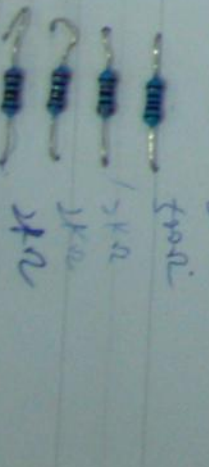 2kΩ
2kΩ
2kΩ
500Ω